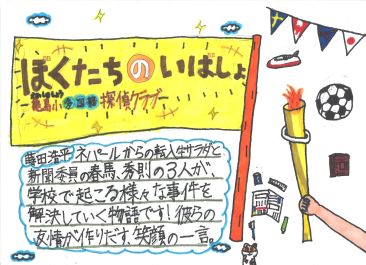 ぼくたちのいばしょ
―亀島小多国籍探偵クラブ―
蒔田浩平
ネパールからの転入生サラダと
新聞委員の春馬、秀則の3人が、
学校で起こる様々な事件を
解決していく物語です!彼らの
友情が作りだす、笑顔の一言。